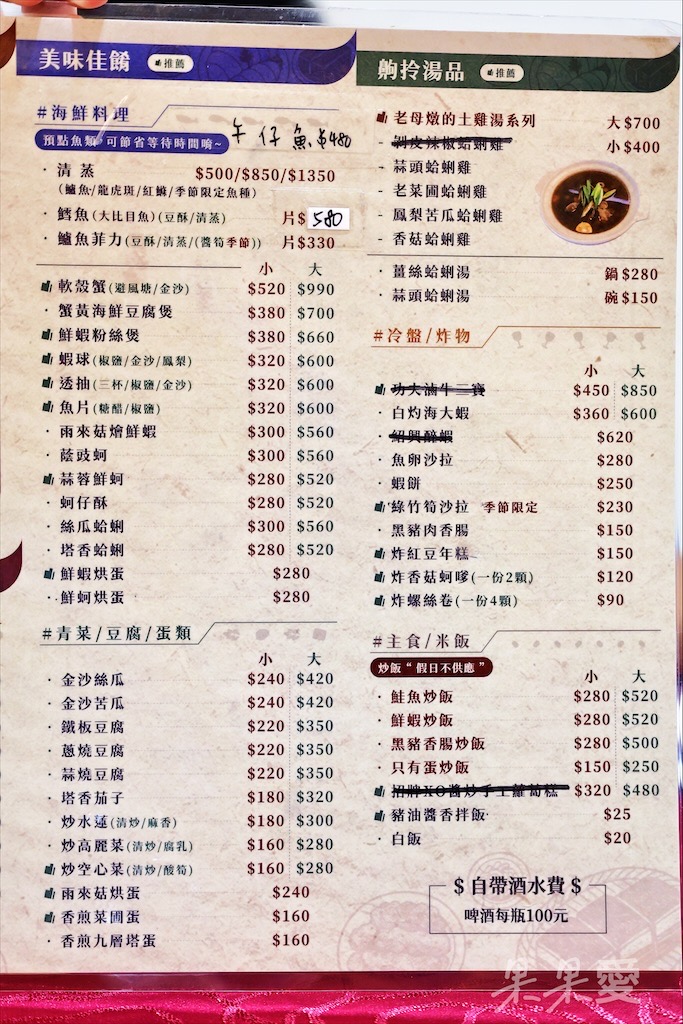 美味佳餚 推薦
#海鮮料理
預點魚類 可節省等待時間唷~ 午仔魚$480
·清蒸 $500/$850/$1350
(鱸魚/龍虎斑/紅鰽/季節限定魚種)
·鱈魚(大比目魚)(豆酥/清蒸) 片$580
·鱸魚菲力(豆酥/清蒸/(醬筍季節)) 片$330
小 大
軟殼蟹(避風塘/金沙) $520 $990
·蟹黃海鮮豆腐煲 $380 $700
鮮蝦粉絲煲 $380 $660
蝦球(椒鹽/金沙/鳳梨) $320 $600
透抽(三杯/椒鹽/金沙) $320 $600
魚片(糖醋/椒鹽) $320 $600
·雨來菇燴鮮蝦 $300 $560
·蔭豉蚵 $300 $560
蒜蓉鮮蚵 $280 $520
·蚵仔酥 $280 $520
·絲瓜蛤蜊 $300 $560
·塔香蛤蜊 $280 $520
鮮蝦烘蛋 $280
·鮮蚵烘蛋 $280
#青菜/豆腐/蛋類
小 大
·金沙絲瓜 $240 $420
·金沙苦瓜 $240 $420
·鐵板豆腐 $220 $350
·蔥燒豆腐 $220 $350
·蒜燒豆腐 $220 $350
·塔香茄子 $180 $320
·炒水蓮(清炒/麻香) $180 $300
·炒高麗菜(清炒/腐乳) $160 $280
炒空心菜(清炒/酸筍) $160 $280
雨來菇烘蛋 $240
香煎菜圃蛋 $160
·香煎九層塔蛋 $160
舺拎湯品 推薦
老母燉的土雞湯系列 大$700
- 剝皮辣椒蛤蜊雞 小$400
- 蒜頭蛤蜊雞
- 老菜圃蛤蜊雞
- 鳳梨苦瓜蛤蜊雞
- 香菇蛤蜊雞
·薑絲蛤蜊湯 鍋$280
·蒜頭蛤蜊湯 碗$150
#冷盤/炸物
小 大
功夫滷牛三寶 $450 $850
·白灼海大蝦 $360 $600
·紹興醉蝦 $620
·魚卵沙拉 $280
·蝦餅 $250
綠竹筍沙拉 季節限定 $230
·黑豬肉香腸 $150
炸紅豆年糕 $150
炸香菇蚵嗲(一份2顆) $120
炸螺絲卷(一份4顆) $90
#主食/米飯
炒飯“假日不供應”
小 大
·鮭魚炒飯 $280 $520
·鮮蝦炒飯 $280 $520
·黑豬香腸炒飯 $280 $500
·只有蛋炒飯 $150 $250
招牌XO醬炒手工蘿蔔糕 $320 $480
豬油醬香拌飯 $25
·白飯 $20
$ 自帶酒水費 $
啤酒每瓶100元
果果愛